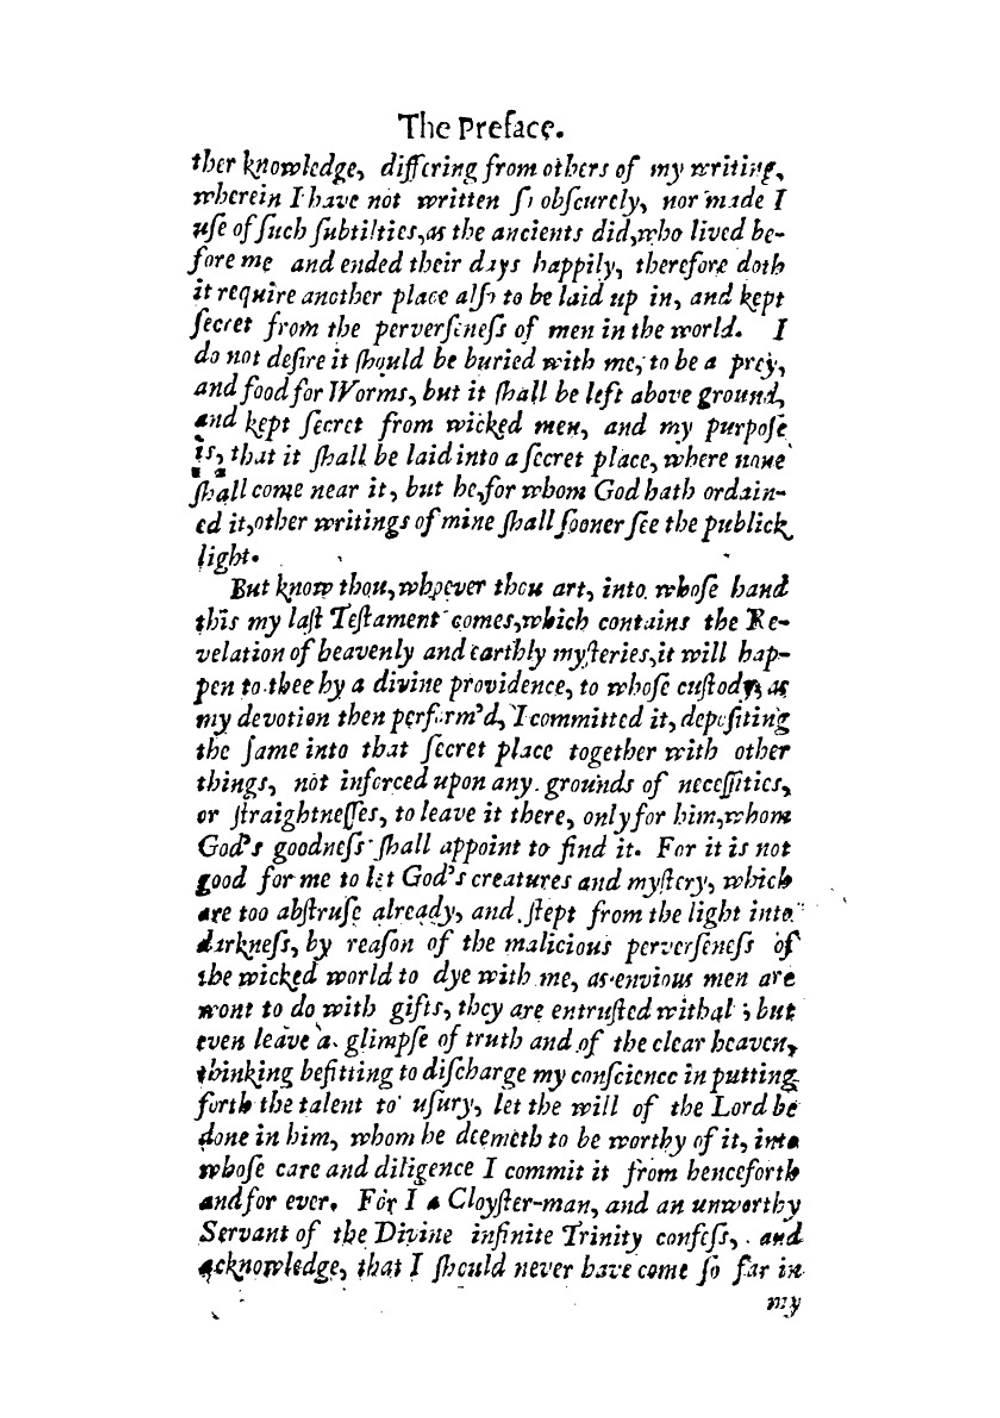 The Preface.
ther knowledge, differing from others of my writing,
wherein I have not written ſo obſcurely, nor made I
uſe of ſuch ſubtilties, as the ancients did, who lived be-
fore me and ended their days happily, therefore doth
it require another place alſo to be laid up in, and kept
ſecret from the perverſeneſs of men in the world. I
do not deſire it ſhould be buried with me, to be a prey,
and food for Worms, but it ſhall be left above ground,
and kept ſecret from wicked men, and my purpoſe
is, that it ſhall be laid into a ſecret place, where none
ſhall come near it, but he, for whom God hath ordain-
ed it, other writings of mine ſhall ſooner ſee the publick
light.
But know thou, whoever thou art, into whoſe hand
this my laſt Teſtament comes, which contains the Re-
velation of heavenly and earthly myſteries, it will hap-
pen to thee by a divine providence, to whoſe cuſtody, as
my devotion then perform'd, I committed it, depoſiting
the ſame into that ſecret place together with other
things, not inforced upon any grounds of neceſſities,
or ſtraightneſſes, to leave it there, only for him, whom
God's goodneſs ſhall appoint to find it. For it is not
good for me to let God's creatures and myſtery, which
are too abſtruſe already, and ſtept from the light into
darkneſs, by reaſon of the malicious perverſeneſs of
the wicked world to dye with me, as envious men are
wont to do with gifts, they are entruſted withal; but
even leave a glimpſe of truth and of the clear heaven,
thinking befitting to diſcharge my conſcience in putting
forth the talent to uſury, let the will of the Lord be
done in him, whom he deemeth to be worthy of it, into
whoſe care and diligence I commit it from henceforth
and for ever. For I a Cloyſter-man, and an unworthy
Servant of the Divine infinite Trinity confeſs, and
acknowledge, that I ſhould never have come ſo far in
my